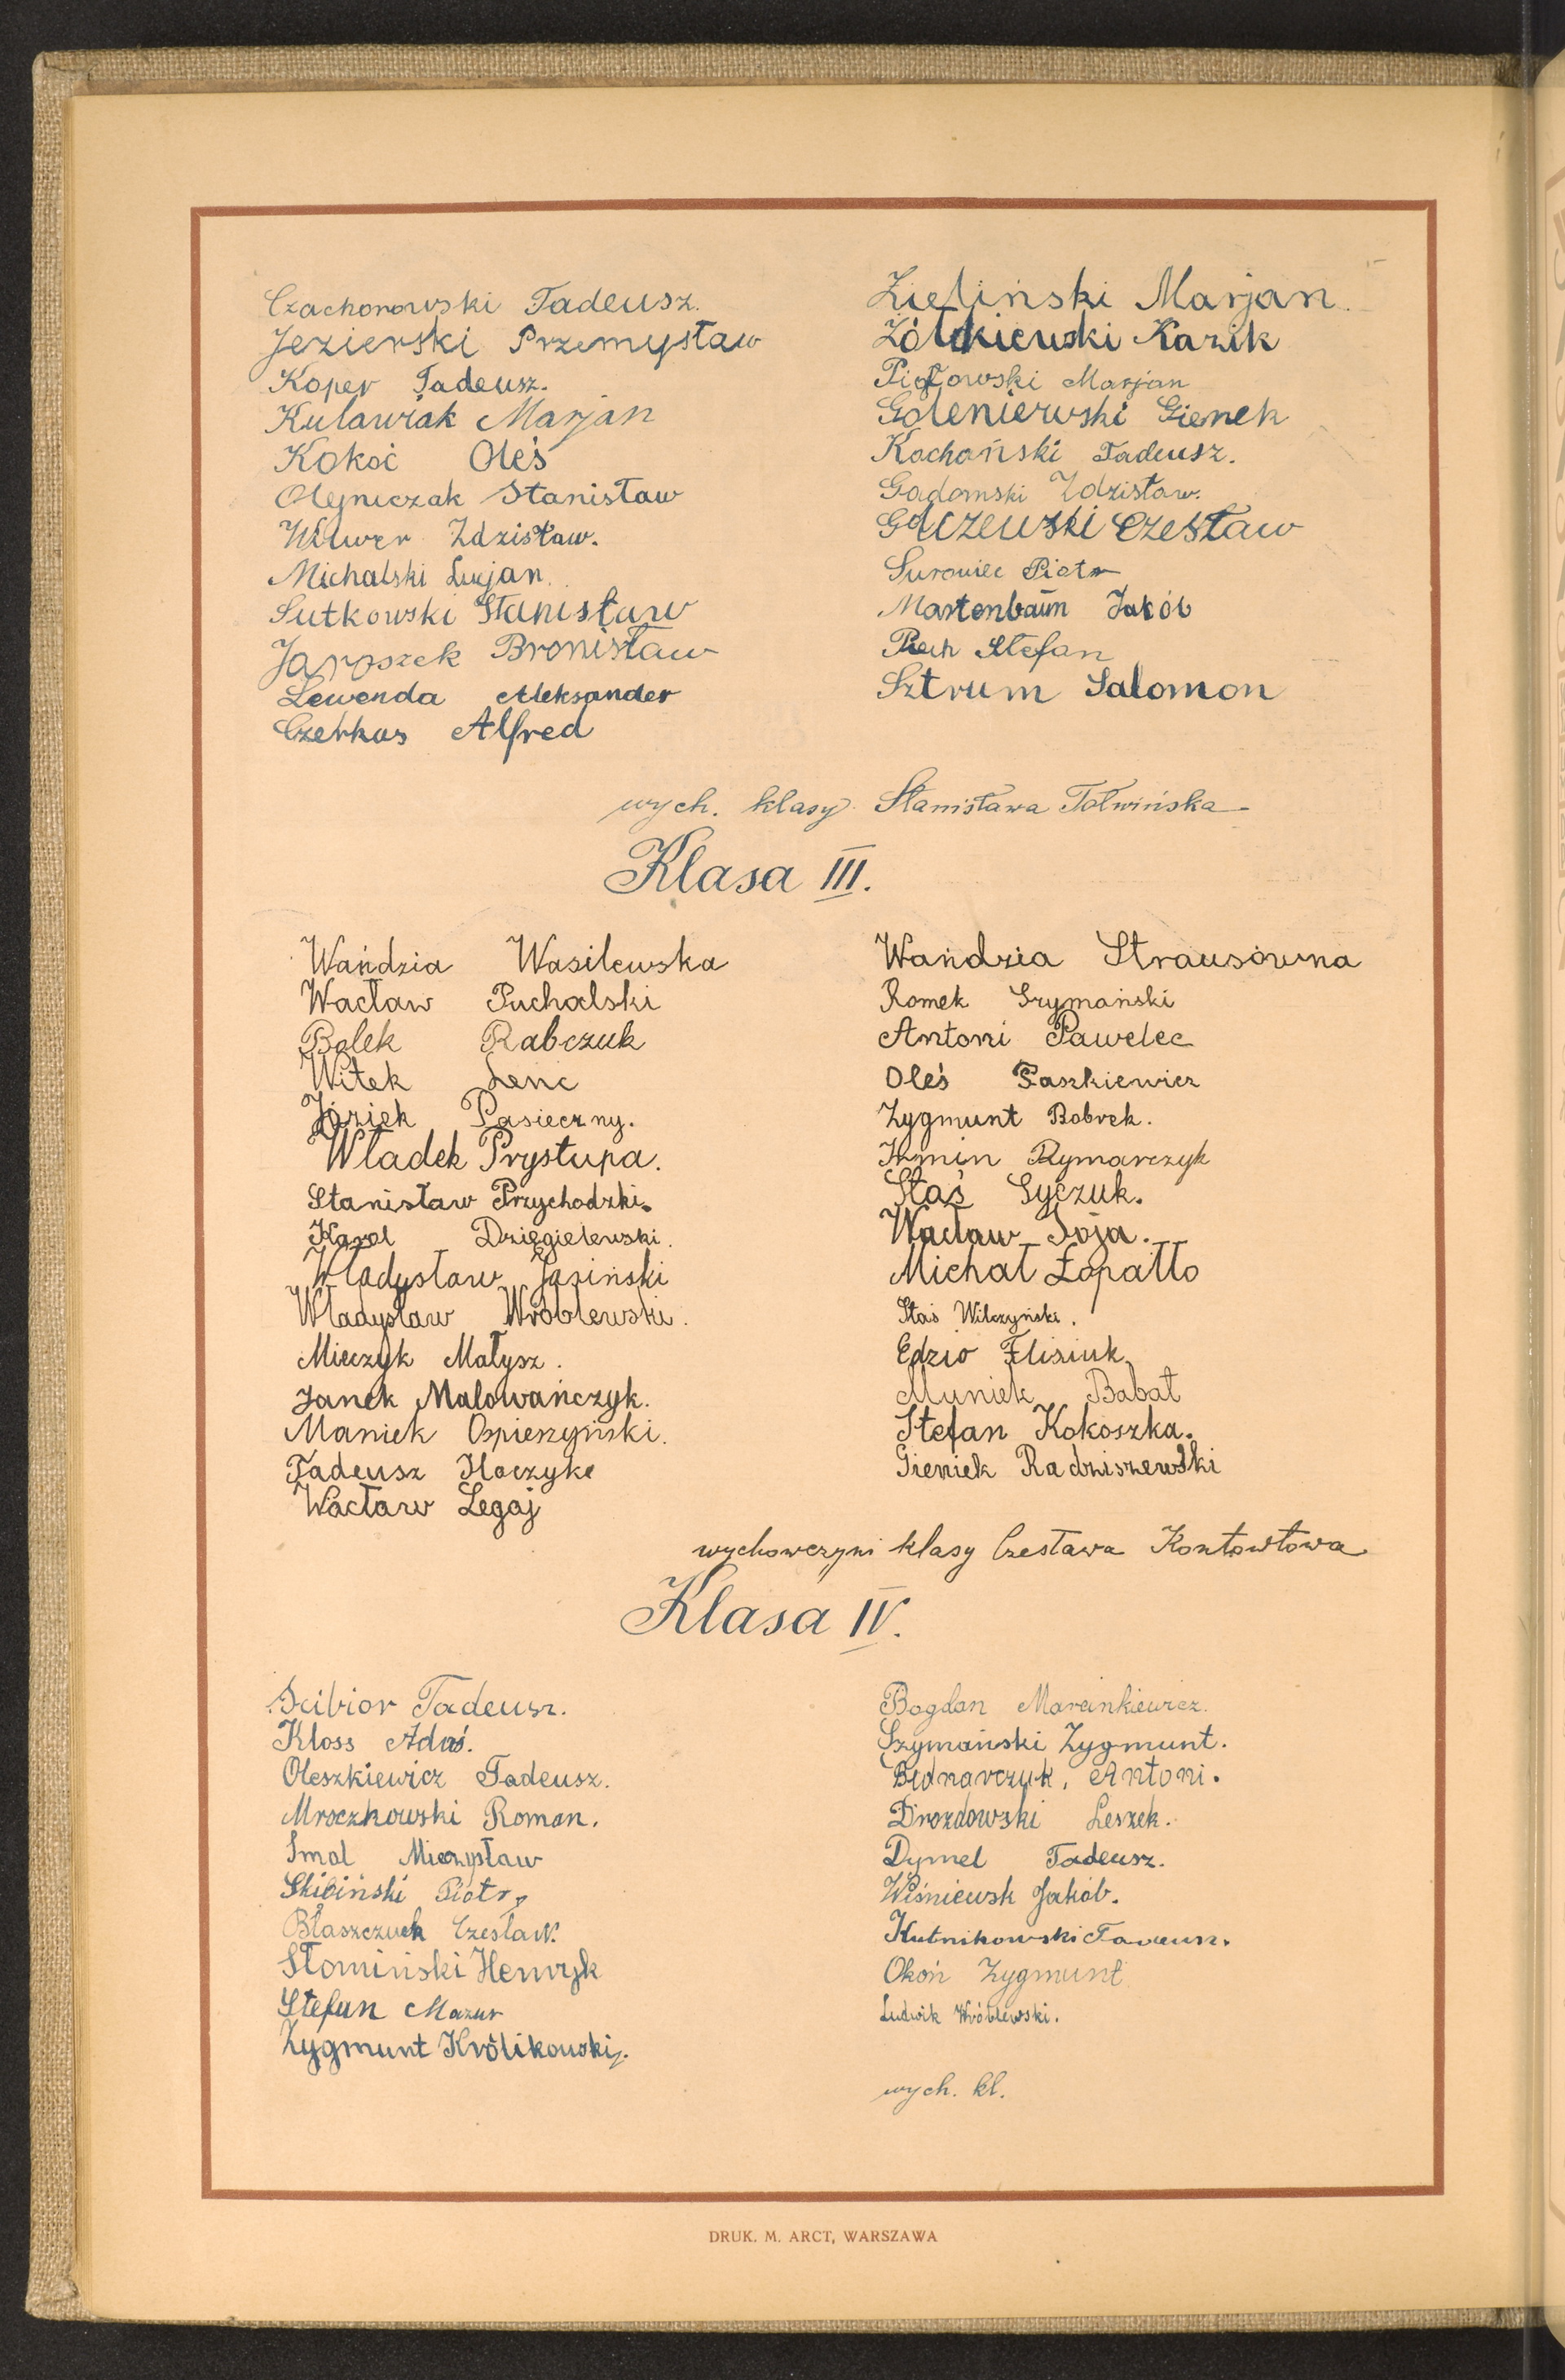 Czachorowski Tadeusz.
Jezierski Przemysław
Koper Tadeusz.
Kulawiak Marjan
Kokoć Oleś
Olejniczak Stanisław
Wilwer Zdzisław.
Michalski Lucjan.
Sutkowski Stanisław
Jaroszek Bronisław
Lewenda Aleksander
Czerkus Alfred
Zieliński Marjan.
Żółkiewski Kazik
Piotrowski Marjan
Goleniewski Gienek
Kochański Tadeusz.
Gadomski Zdzisław.
Golczewski Czesław
Surowiec Piotr
Martenbaum Jakób
Piech Stefan
Sztrum Salomon
wych. klasy Stanisława Tołwińska
Klasa III.
Wańdzia Wasilewska
Wacław Puchalski
Bolek Rabczuk
Witek Lenc
Józiek Pasieczny.
Władek Prystupa.
Stanisław Przychodzki.
Karol Dzięgielewski.
Władysław Jasiński
Władysław Wróblewski.
Mieczyk Małysz.
Janek Malowańczyk.
Maniek
Tadeusz
Wacław Legaj
Wańdzia Strausówna
Romek Szymański
Antoni Pawelec
Oleś Paszkiewicz
Zygmunt Bobrek.
Rymarczyk
Staś
Wacław Soja.
Michał Łopatto
Staś Wilczyński.
Edzio Flisiuk
Muniek Babat
Stefan Kokoszka.
Gieniek Radziszewski
wychowczyni klasy Czesława Kontowtowa
Klasa IV.
Scibior Tadeusz.
Kloss Adaś.
Oleszkiewicz Tadeusz.
Mroczkowski Roman.
Smal Mieczysław
Skibiński Piotr
Błaszczuk Czesław.
Słomiński Henryk
Stefan Mazur
Zygmunt Królikowski.
Bogdan Marcinkiewicz.
Szymański Zygmunt.
Bednarczuk, Antoni.
Drozdowski Leszek.
Dymel Tadeusz.
Wiśniewsk Jakób.
Kutnikowski Tadeusz.
Okoń Zygmunt
Ludwik Wróblewski.
wych. kl.
DRUK. M. ARCT, WARSZAWA